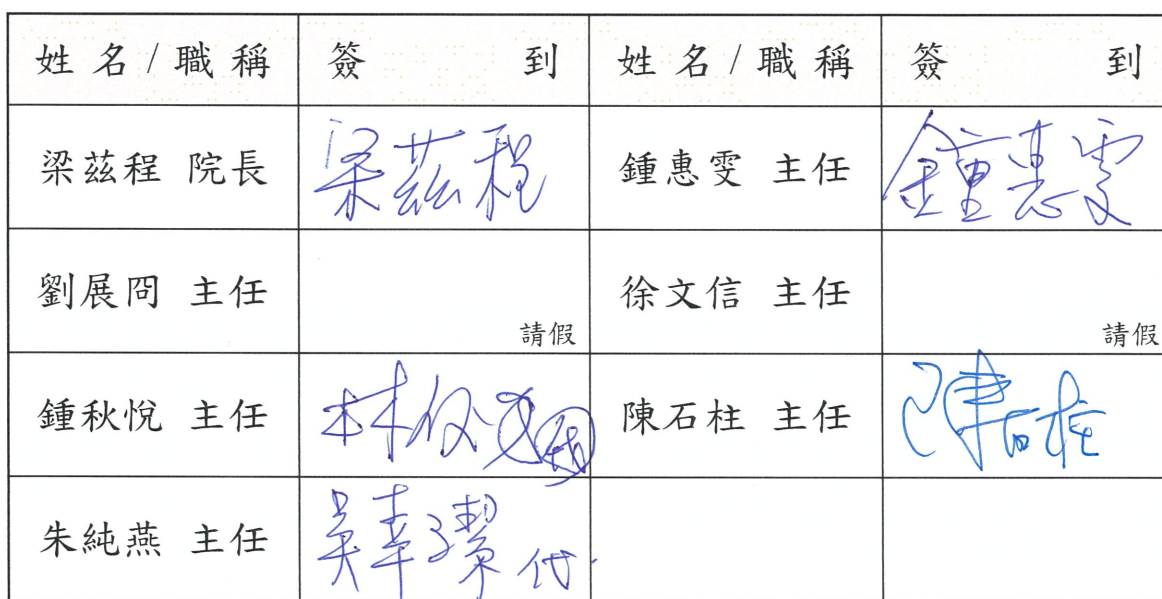 姓名/職稱 簽到 姓名/職稱 簽到
梁茲程 院長 梁茲程 鍾惠雯 主任 鍾惠雯
劉展冏 主任 請假 徐文信 主任 請假
鍾秋悅 主任 林 陳石柱 主任 陳石柱
朱純燕 主任 吳 代